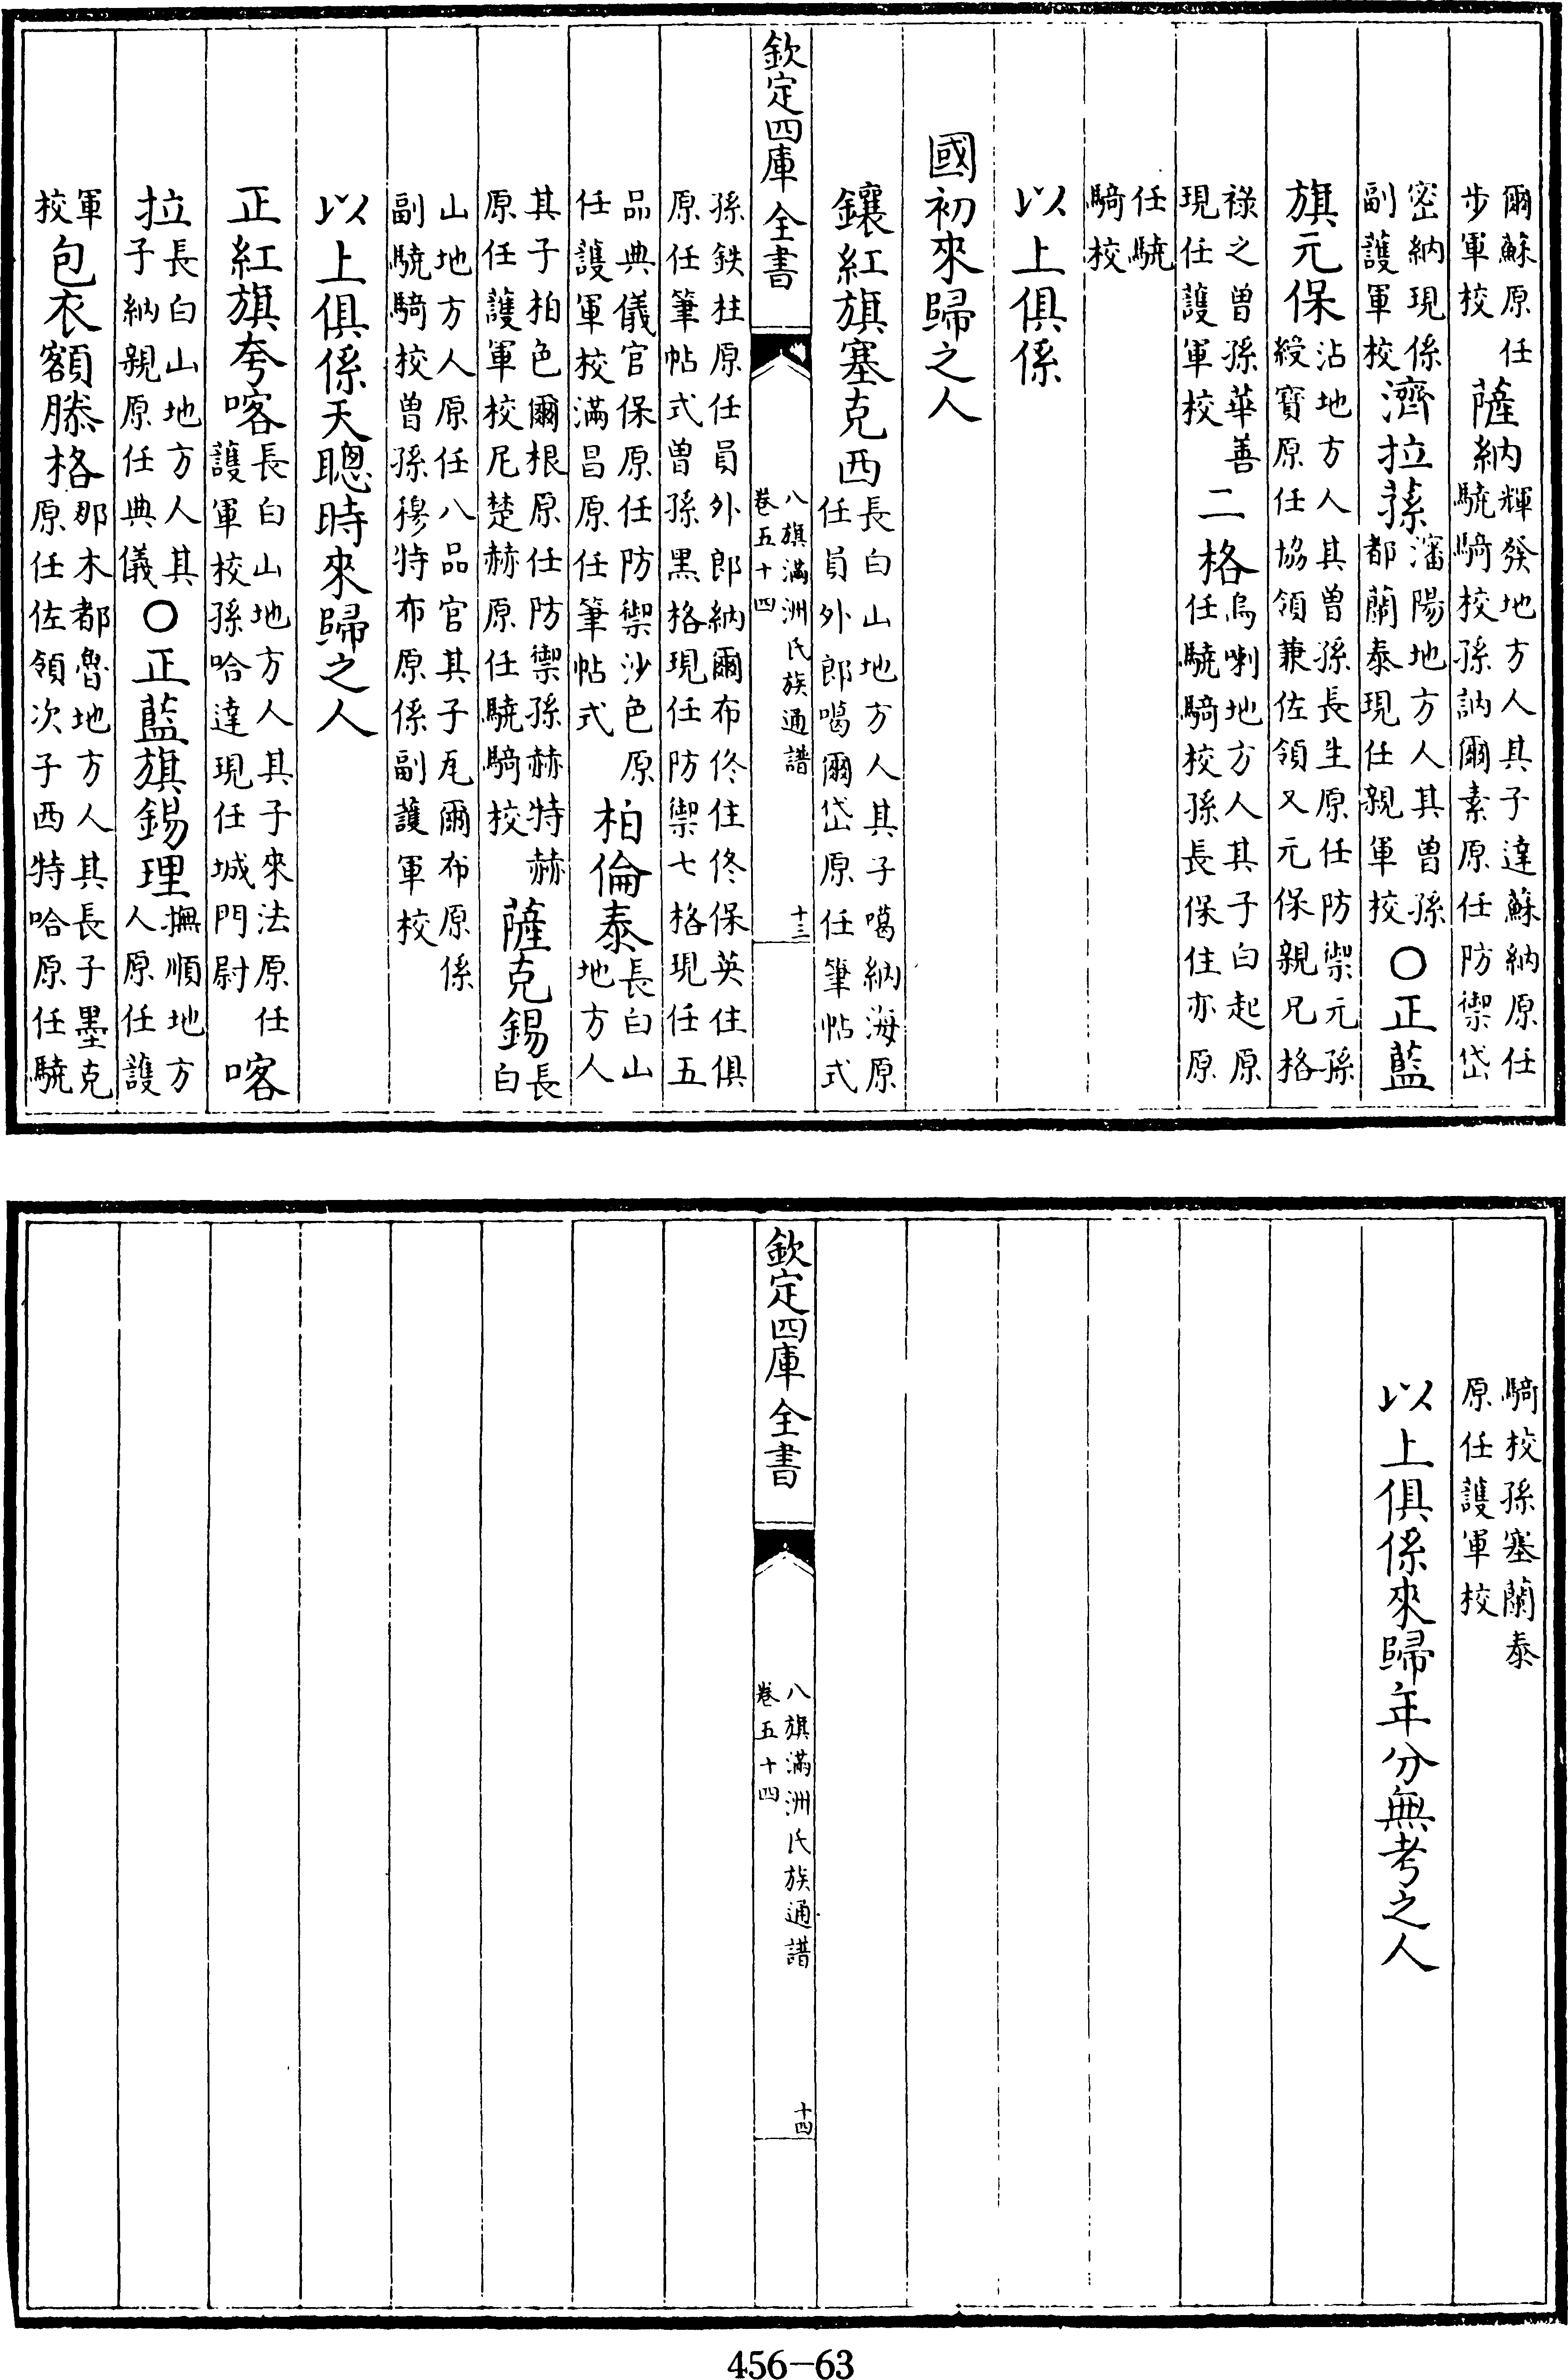 爾蘇原任步軍校薩納輝發地方人其子達蘇納原任驍騎校孫訥爾素原任防禦岱
密納現係副護軍校濟拉蓀瀋陽地方人其曾孫都蘭泰現任親軍校○正藍
旗元保沾地方人其曾孫長生原任防禦元孫綬寶原任協領兼佐領又元保親兄格
祿之曾孫華善現任護軍校二格烏喇地方人其子白起原任驍騎校孫長保住亦原
任驍騎校
以上俱係
國初來歸之人
鑲紅旗塞克西長白山地方人其子噶納海原任員外郎噶爾岱原任筆帖式
欽定四庫全書
八旗滿洲氏族通譜
卷五十四
十三
孫鉄柱原任員外郎納爾布佟住佟保英住俱原任筆帖式曾孫黑格現任防禦七格現任五
品典儀官保原任防禦沙色原任護軍校滿昌原任筆帖式柏倫泰長白山地方人
其子柏色爾根原任防禦孫赫特赫原任護軍校尼楚赫原任驍騎校薩克錫長白
山地方人原任八品官其子瓦爾布原係副驍騎校曾孫穆特布原係副護軍校
以上俱係天聰時來歸之人
正紅旗夸喀長白山地方人其子來法原任護軍校孫哈達現任城門尉喀
拉長白山地方人其子納親原任典儀○正藍旗錫理撫順地方人原任護
軍校包衣額勝格那木都魯地方人其長子墨克原任佐領次子西特哈原任驍
騎校孫塞蘭泰原任護軍校
以上俱係來歸年分無考之人
欽定四庫全書
八旗滿洲氏族通譜
卷五十四
十四
456-63